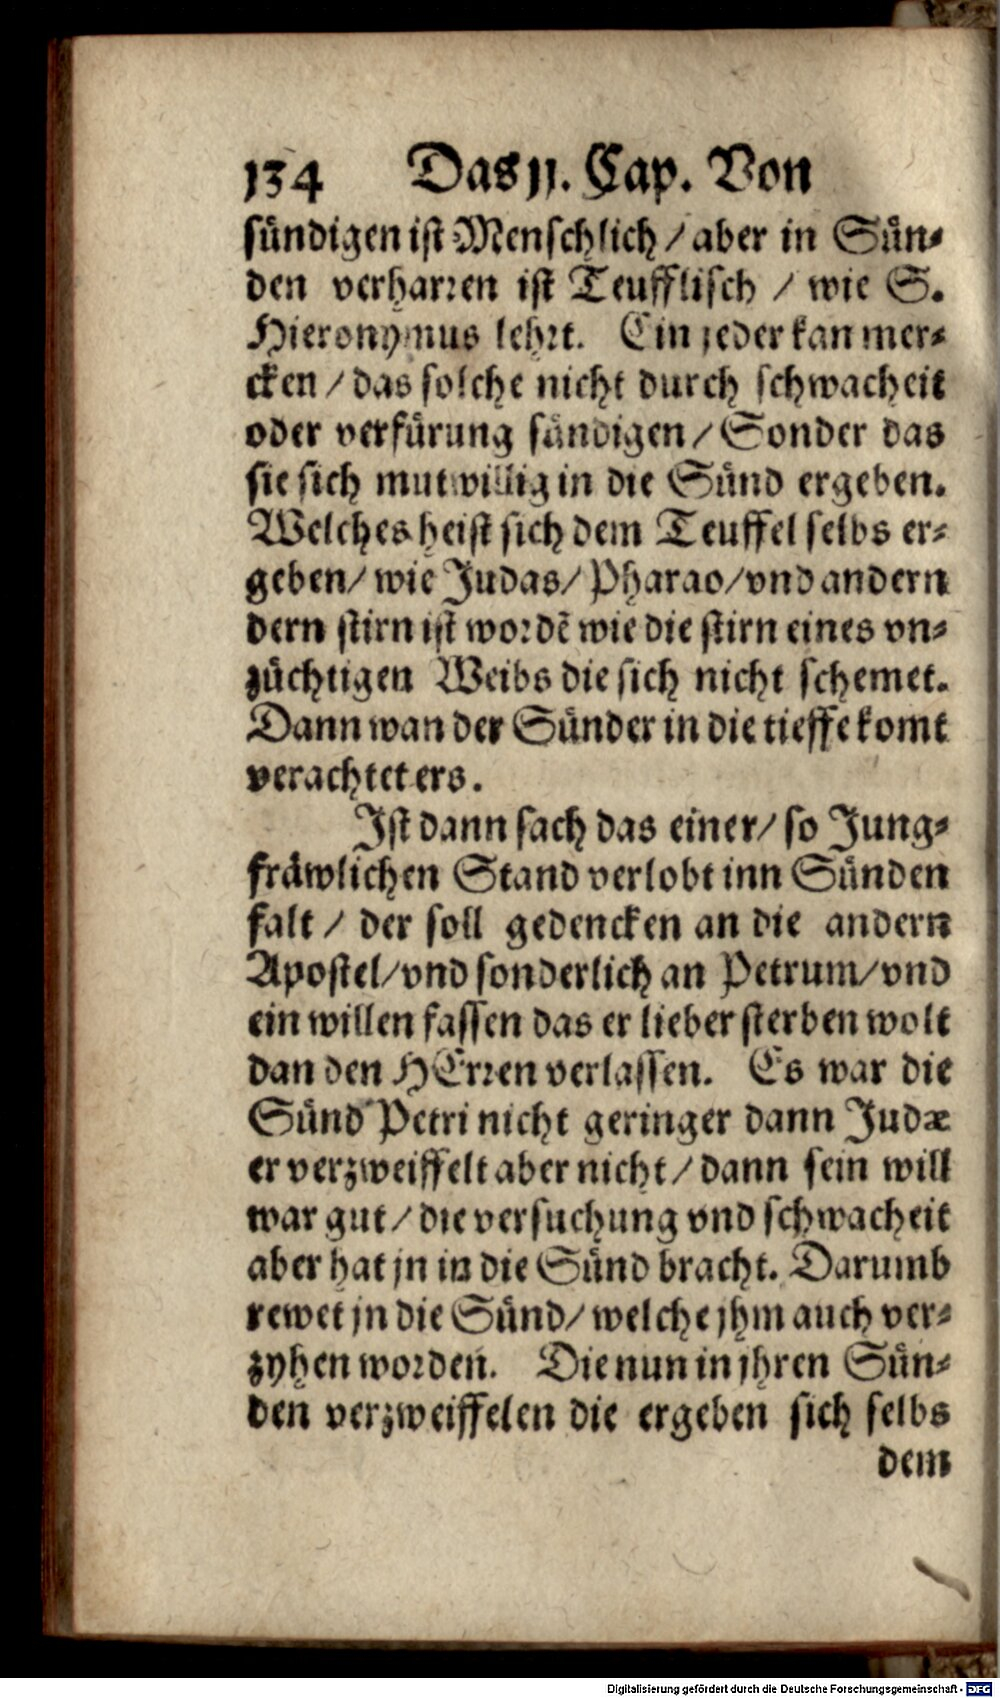 134 Das 11. Cap. Von
sündigen ist Menschlich / aber in Sün⸗
den verharren ist Teufflisch / wie S.
Hieronymus lehrt. Ein jeder kan mer⸗
cken / das solche nicht durch schwacheit
oder verfürung sündigen / Sonder das
sie sich mutwillig in die Sünd ergeben.
Welches heist sich dem Teuffel selbs er⸗
geben / wie Judas / Pharao / vnd andern
dern stirn ist wordẽ wie die stirn eines vn⸗
züchtigen Weibs die sich nicht schemet.
Dann wan der Sünder in die tieffe komt
verachtet ers.
Ist dann sach das einer / so Jung⸗
fräwlichen Stand verlobt inn Sünden
falt / der soll gedencken an die andern
Apostel / vnd sonderlich an Petrum / vnd
ein willen fassen das er lieber sterben wolt
dan den HErren verlassen. Es war die
Sünd Petri nicht geringer dann Judæ
er verzweiffelt aber nicht / dann sein will
war gut / die versuchung vnd schwacheit
aber hat jn in die Sünd bracht. Darumb
rewet jn die Sünd / welche jhm auch ver⸗
zyhen worden. Die nun in jhren Sün⸗
den verzweiffelen die ergeben sich selbs
dem
Digitalisierung gefördert durch die Deutsche Forschungsgemeinschaft - DFG